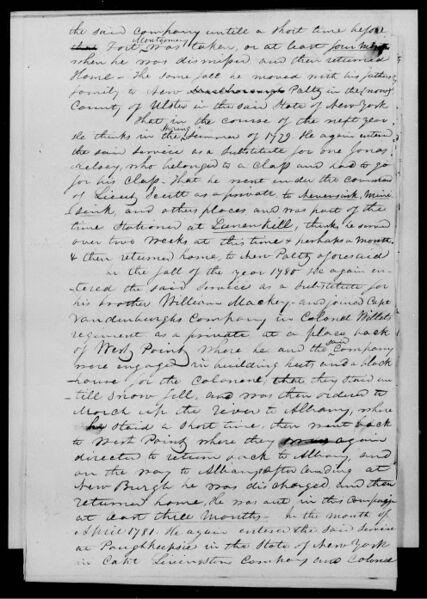 the said company untill a short time before
Montgomery
that Fort was taken, or at least four weeks
when he was dismissed and then returned
Home - The same fall he moved with his fathers
family to New Paltz in the now
County of Ulster in the said State of New York
That in the course of the next year
Spring
He thinks in the Summer of 1779 He again entered
the said service as a Substitute for one Jonas
Kelsey, who belonged to a Class and had to go
for his Class. That he went under the command
of Lieut Scutt as a private, to Neversink, Mini
sink, and other places and was part of the
time Stationed at Lunenkill, thinks he served
over two weeks at this time & perhaps a Month
& then returned home, to New Paltz aforesaid
In the fall of the year 1780 He again en
tered the said Service as a Substitute for
his brother William Mackey and joined Capt
Vandenburghs Company in Colonel Willets
regiment as a private at a place back
of West Point where he and the said Company
were engaged in building huts and a block
house for the Colonel, that they staid un
till snow fell, and was then ordered to
March up the river to Albany, where
he staid a short time, then went back
to West Point where they again
directed to return back to Albany, and
on the way to Albany after landing at
New Burgh he was discharged and then
returned home, He was out in this Campaign
at least three Months - In the month of
April 1781. He again entered the said Service
at Poughkeepsie in the State of New York
in Capt Livingston Company and Colonel